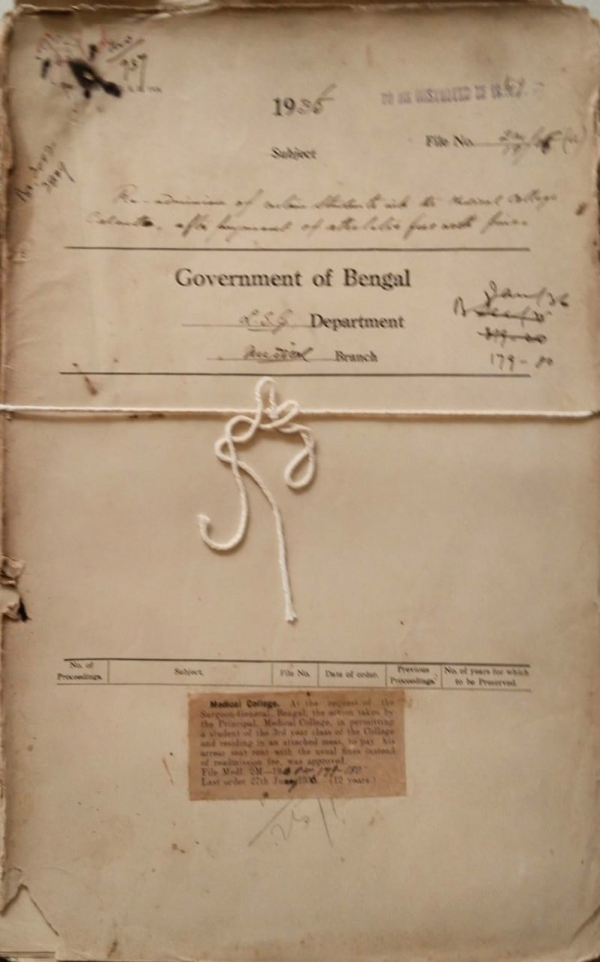 1936
TO BE DESTROYED IN
Subject
File No.
Re-admission of certain Students into the Medical College
Calcutta, after payment of athletic fees with fines.
Government of Bengal
L.S.G Department
Medical Branch
Jan/36
179-80
No. of Proceedings.
Subject.
File No.
Date of order.
Previous Proceedings.
No. of years for which to be Preserved.
Medical College. At the request of the
Surgeon-General, Bengal, the action taken by
the Principal, Medical College, in permitting
a student of the 3rd year class of the College
and residing in an attached mess, to pay his
arrear seat rent with the usual fines instead
of readmission fee, was approved.
File Medl. 2M—
Last order 27th (12 years.)